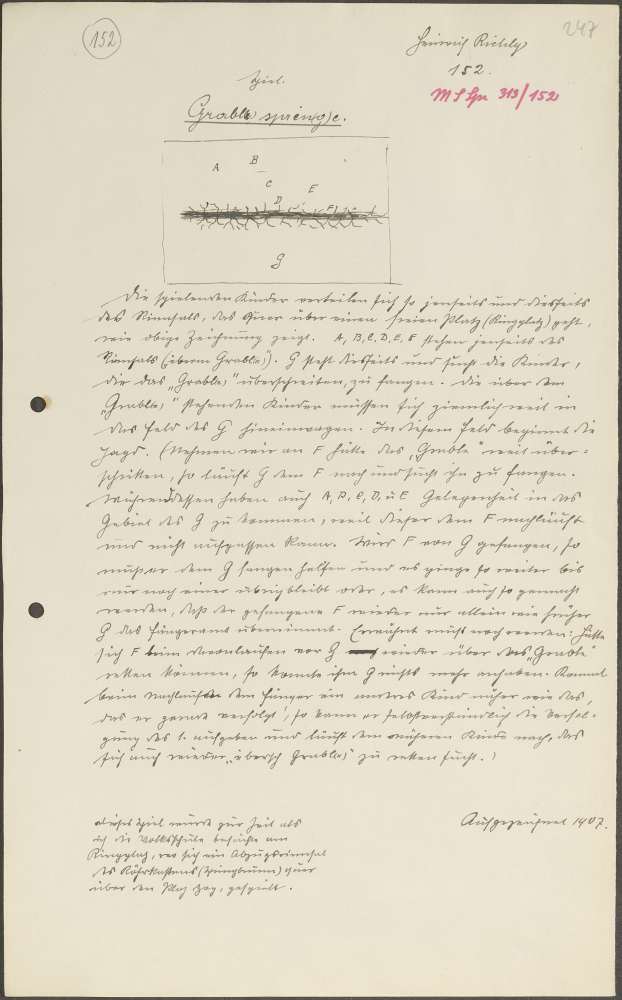 152
247
Heinrich
152.
M S Spr 313/152
Spiel.
Grable spring(e.
A B
C E
D F
G
Die spielenden Kinder verteilen sich so jenseits und diesseits
des Rinnsals, das quer über einen freien Platz (Ringplatz) geht,
wie obige Zeichnung zeigt. A, B, C, D, E, F stehen jenseits des
Rinnsals (überm Grable"). G steht diesseits und sucht die Kinder,
die das „Grable" überschreiten, zu fangen. Die über dem
„Grable" stehenden Kinder müssen sich ziemlich weit in
das Feld des G hineinwagen. In diesem Feld beginnt die
Jagd. (Nehmen wir an F hätte das „Grable" weit über=
schritten, so läuft G dem F nach und sucht ihn zu fangen.
Währenddessen haben auch A, B, C, D, u E Gelegenheit in das
Gebiet des G zu kommen, weil dieser dem F nachläuft
und nicht aufpassen kann. Wird F von G gefangen, so
muß er dem G fangen helfen und es ginge so weiter bis
nur noch einer übrigbleibt oder, es kann auch so gemacht
werden, daß der gefangene F wieder nur allein wie früher
G das Fängeramt übernimmt. Erwähnt muß noch werden: Hätte
sich F beim davonlaufen vor G wieder über das „Grable"
retten können, so konnte ihm G nichts mehr anhaben. Kommt
beim nachlaufen dem Fänger ein anderes Kind näher wie das,
das er gerade verfolgt, so kann er selbstverständlich die Verfol=
gung des 1. aufgeben und läuft dem näheren Kinde nach, das
sich auch wieder „übersch Grable" zu retten sucht.)
Aufgezeichnet 1907.
Dieses Spiel wurde zur Zeit als
ich die Volksschule besuchte am
Ringplatz, wo sich ein Abzugsrinnsal
des Röhrkastens (Springbrunn) quer
über den Platz zog, gespielt.